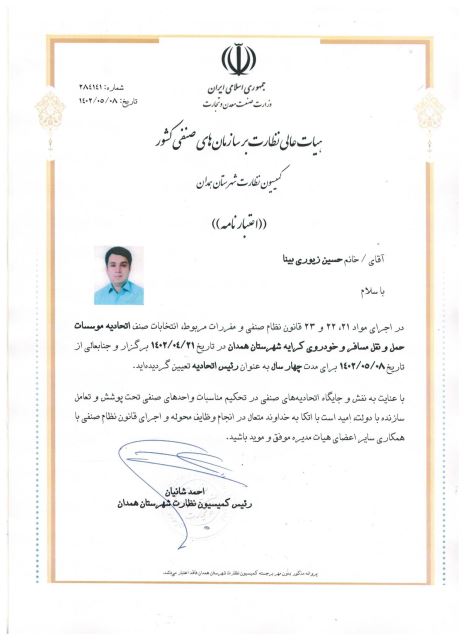 جمهوری اسلامی ایران
وزارت صنعت معدن و تجارت
شماره: ۲۸۴۱۴۱
تاریخ: ۱۴۰۲/۰۵/۰۸
هیات عالی نظارت بر سازمان های صنفی کشور
کمیسیون نظارت شهرستان همدان
((اعتبار نامه))
آقای / خانم حسین زیوری بینا
با سلام
در اجرای مواد ۲۱، ۲۲ و ۲۳ قانون نظام صنفی و مقررات مربوط، انتخابات صنف اتحادیه موسسات
حمل و نقل مسافر و خودروی کرایه شهرستان همدان در تاریخ ۱۴۰۲/۰۴/۲۱ برگزار و جنابعالی از
تاریخ ۱۴۰۲/۰۵/۰۸ برای مدت چهار سال به عنوان رئیس اتحادیه تعیین گردیده‌اید.
با عنایت به نقش و جایگاه اتحادیه‌های صنفی در تحکیم مناسبات واحدهای صنفی تحت پوشش و تعامل
سازنده با دولت، امید است با اتکا به خداوند متعال در انجام وظایف محوله و اجرای قانون نظام صنفی با
همکاری سایر اعضای هیات مدیره موفق و موید باشید.
احمد شانیان
رئیس کمیسیون نظارت شهرستان همدان
پروانه مذکور بدون مهر برجسته کمیسیون نظارت شهرستان همدان فاقد اعتبار می‌باشد.